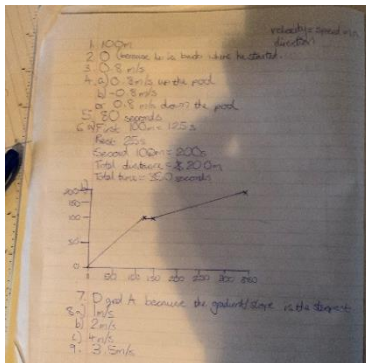 velocity = speed in a
direction
1. 100m
2. 0 because he is back where he started.
3. 0.8 m/s
4. a) 0.8m/s up the pool
b) -0.8 m/s
or 0.8 m/s down the pool
5. 80 seconds
6. a) First 100m = 125s
Rest 25s
Second 100m = 200s
Total distance = 200m
Total time = 350 seconds
200
150
100
50
0
0 50 100 150 200 250 300 350
7. D and A because the gradient/slope is the steepest
8. a) 1m/s
b) 2m/s
c) 4m/s
9. 3.5m/s